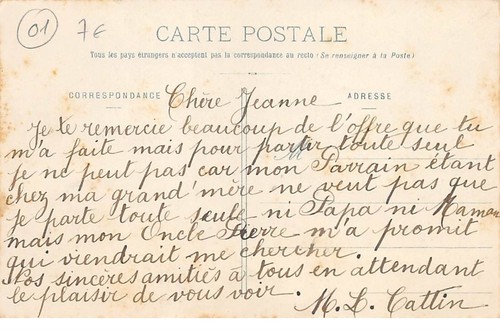 01 7€
CARTE POSTALE
Tous les pays étrangers n'acceptent pas la correspondance au recto (Se renseigner à la Poste)
CORRESPONDANCE ADRESSE
Chère Jeanne
Je te remercie beaucoup de l'offre que tu
m'a faite mais pour partir toute seul
je ne peut pas car mon Parrain étant
chez ma grand'mère ne veut pas que
je parte toute seule ni Papa ni Maman
mais mon Oncle Pierre m'a promit
qui viendrait me chercher.
Nos sincères amitiés à tous en attendant
le plaisir de vous voir. M. L. Cattin